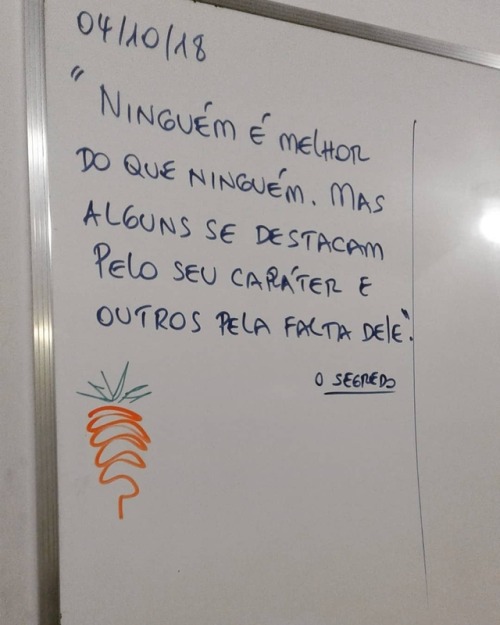 04/10/18
"NINGUÉM É MELHOR
DO QUE NINGUÉM. MAS
ALGUNS SE DESTACAM
PELO SEU CARÁTER E
OUTROS PELA FALTA DELE".
O SEGREDO